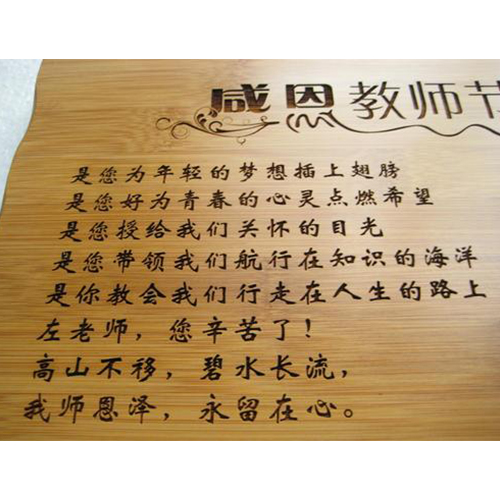 感恩教师节
是您为年轻的梦想插上翅膀
是您好为青春的心灵点燃希望
是您授给我们关怀的目光
是您带领我们航行在知识的海洋
是你教会我们行走在人生的路上
左老师，您辛苦了！
高山不移，碧水长流，
我师恩泽，永留在心。